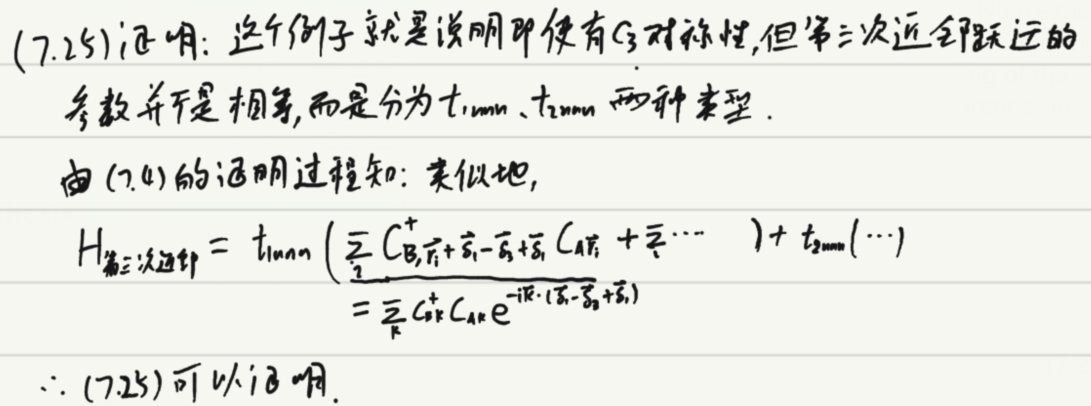 (7.25)证明: 这个例子就是说明即使有C₃对称性,但第三次近邻跃迁的
参数并不是相等,而是分为t₁ₙₙₙ、t₂ₙₙₙ两种类型.
由(7.4)的证明过程知: 类似地,
H第三次近邻 = t₁ₙₙₙ ( Σᵢ C⁺_{B,r⃗ᵢ+δ⃗₁-δ⃗₃+δ⃗₁} C_{Ar⃗ᵢ} + Σᵢ ⋯ ) + t₂ₙₙₙ(⋯)
= Σₖ C⁺_{Bk} C_{Ak} e^{-ik⃗·(δ⃗₁-δ⃗₃+δ⃗₁)}
∴ (7.25)可以证明.